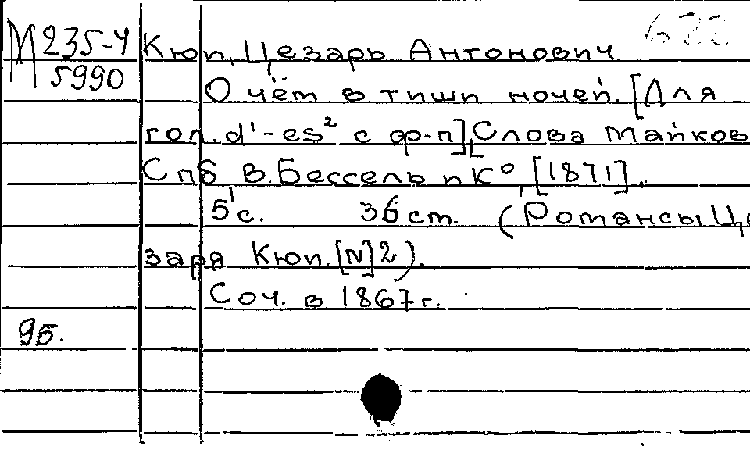 М 235-4 Кюи, Цезарь Антонович 622
5990
О чём в тиши ночей. [Для
гол. d¹-es² с ф-п], Слова Майков
Спб В. Бессель и К⁰, [1871].
5 с. 36 ст. (Романсы Це
заря Кюи. [N] 2).
Соч. в 1867 г.
95.